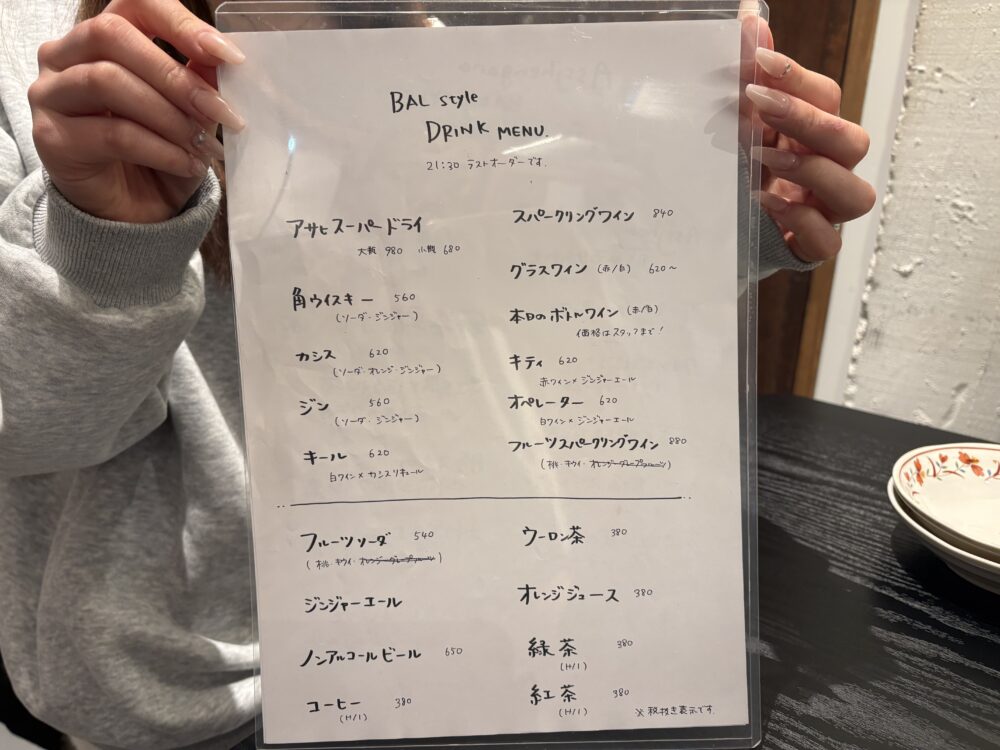 BAL style
DRINK MENU.
21:30 ラストオーダーです.
アサヒスーパードライ
大瓶 980 小瓶 680
角ウイスキー 560
(ソーダ・ジンジャー)
カシス 620
(ソーダ・オレンジ・ジンジャー)
ジン 560
(ソーダ・ジンジャー)
キール 620
白ワイン×カシスリキュール
スパークリングワイン 840
グラスワイン (赤/白) 620~
本日のボトルワイン (赤/白)
価格はスタッフまで!
キティ 620
赤ワイン×ジンジャーエール
オペレーター 620
白ワイン×ジンジャーエール
フルーツスパークリングワイン 880
(桃・キウイ・オレンジ・グレープフルーツ)
フルーツソーダ 540
(桃・キウイ・オレンジ・グレープフルーツ)
ジンジャーエール
ノンアルコールビール 650
コーヒー 380
(H/I)
ウーロン茶 380
オレンジジュース 380
緑茶 380
(H/I)
紅茶 380
(H/I)
※税抜き表示です.